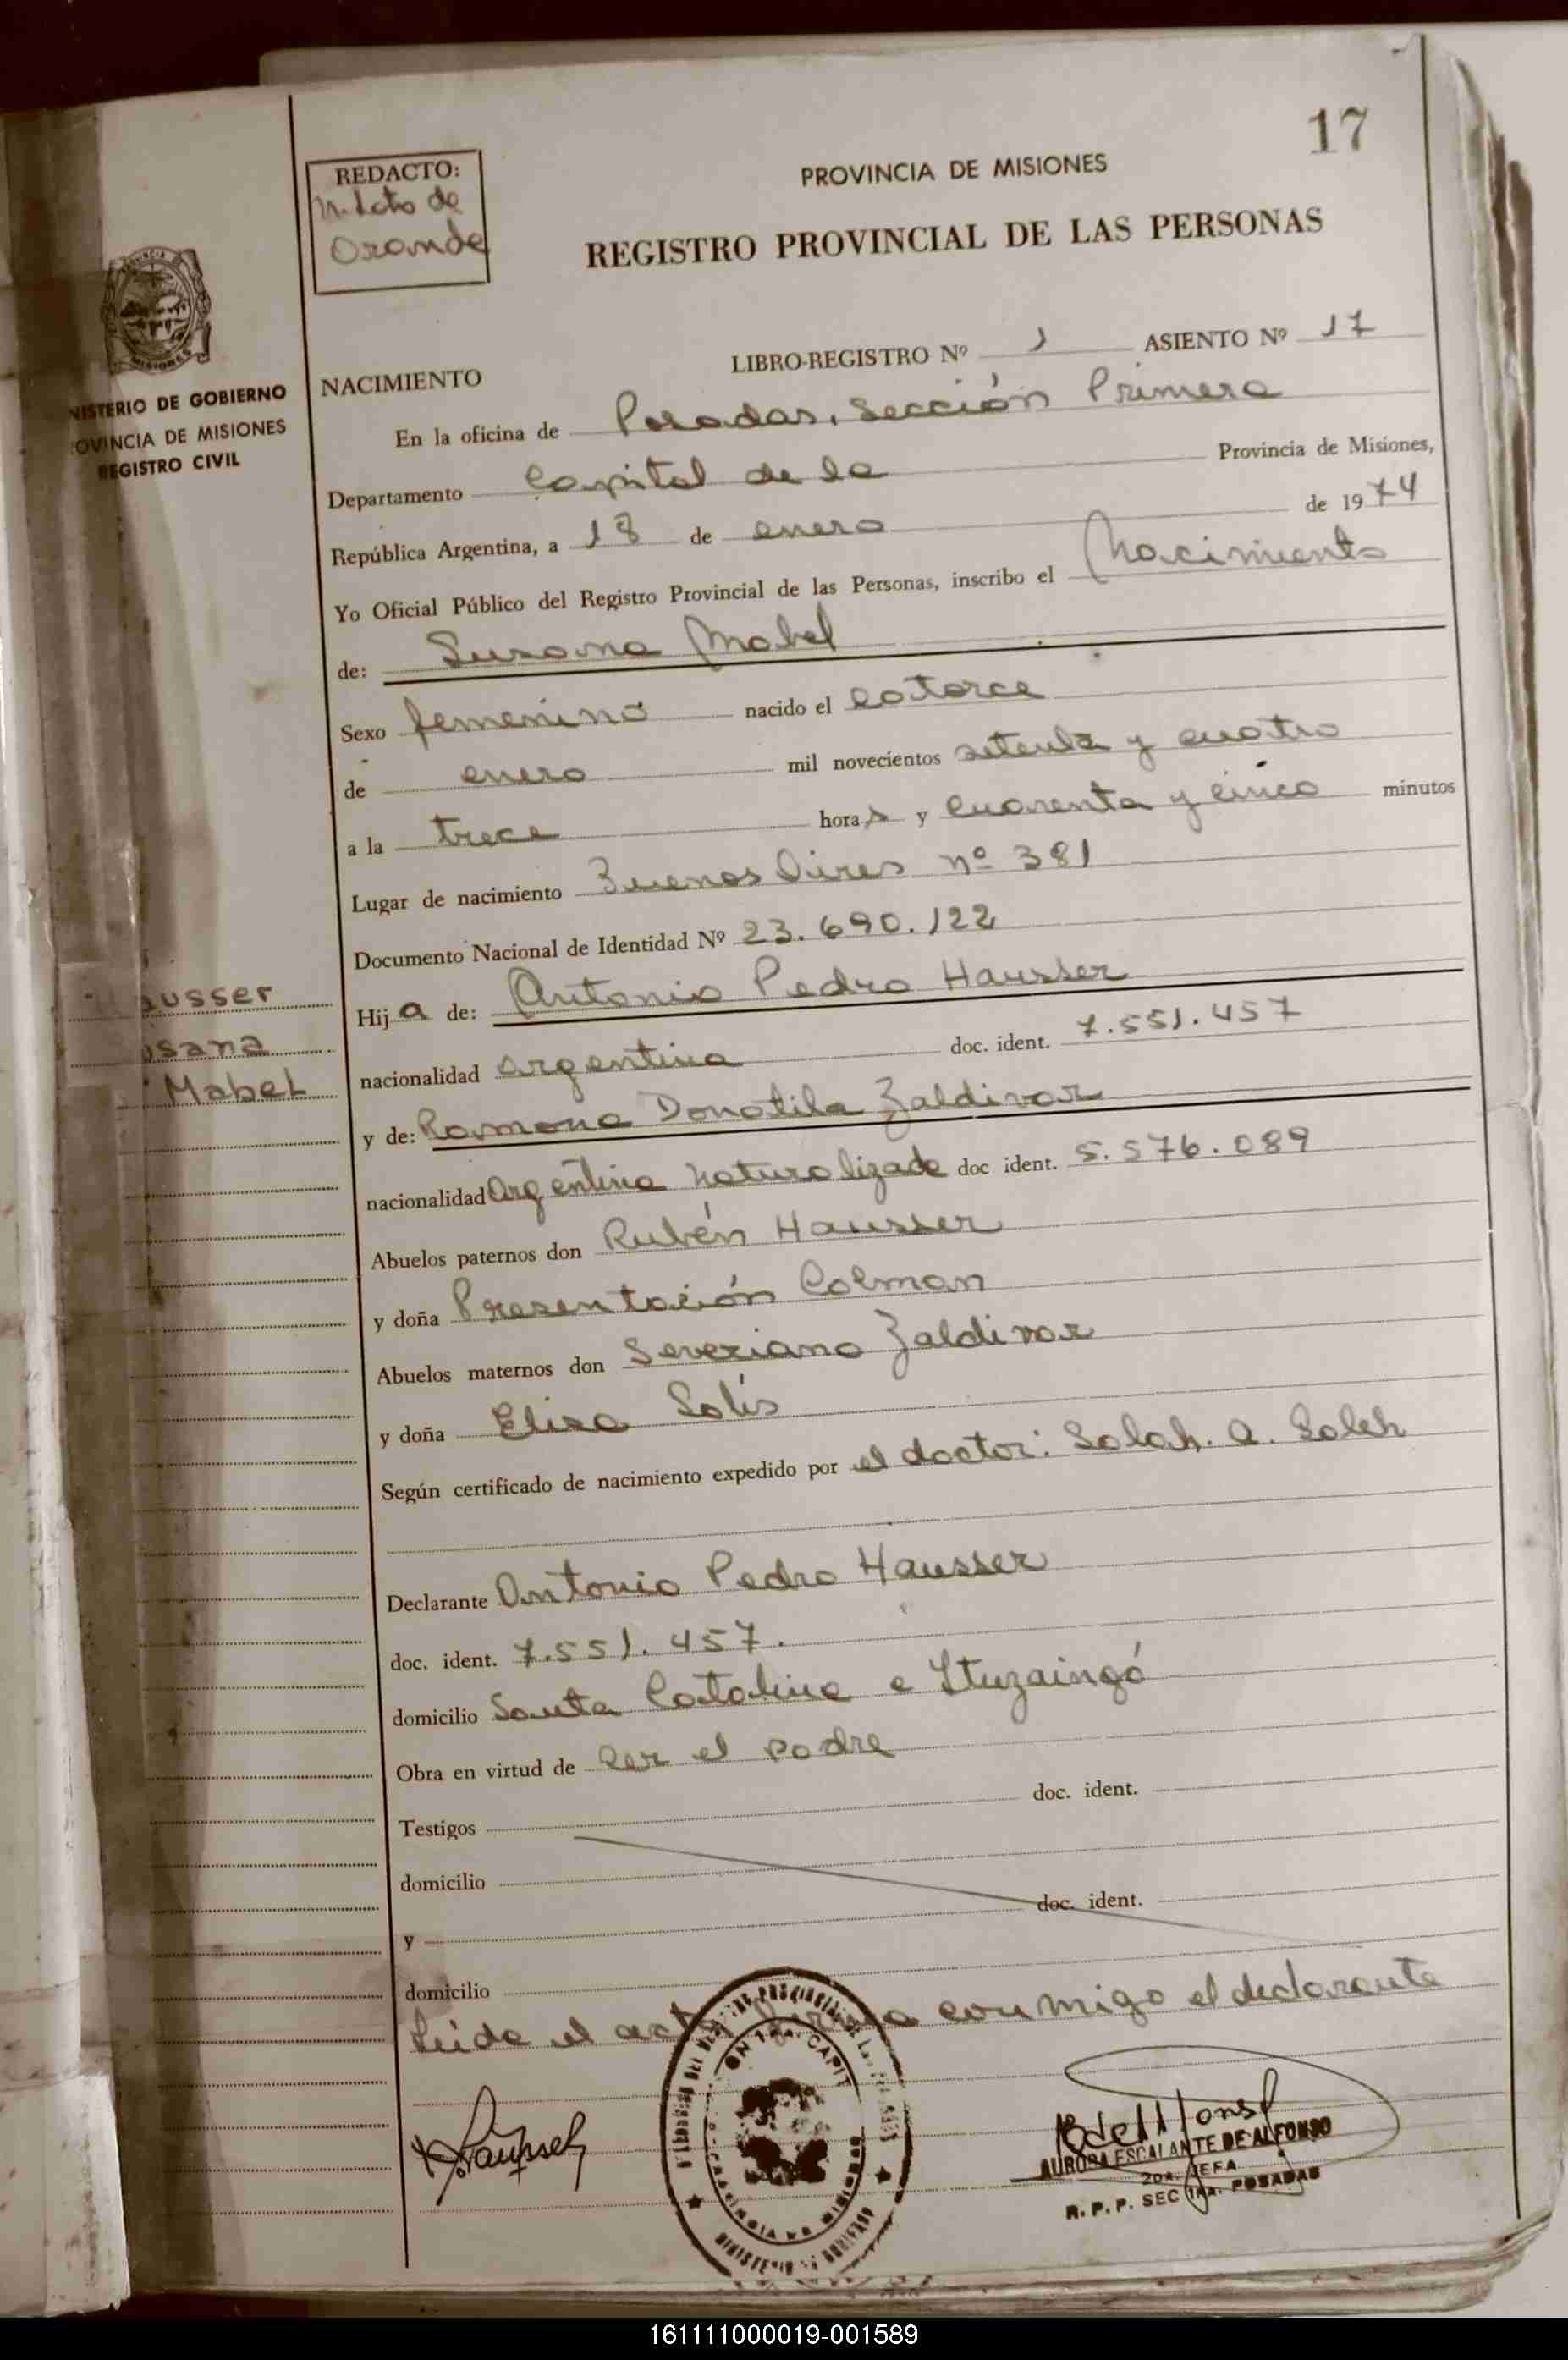 17
REDACTO:
de
PROVINCIA DE MISIONES
REGISTRO PROVINCIAL DE LAS PERSONAS
NISTERIO DE GOBIERNO
OVINCIA DE MISIONES
REGISTRO CIVIL
NACIMIENTO LIBRO-REGISTRO Nº 1 ASIENTO Nº 17
En la oficina de Posadas, Sección Primera
Departamento Capital de la Provincia de Misiones,
República Argentina, a 18 de enero de 1974
Yo Oficial Público del Registro Provincial de las Personas, inscribo el Nacimiento
de: Susana Mabel
Sexo femenino nacido el catorce
de enero mil novecientos setenta y cuatro
a la trece horas y cuarenta y cinco minutos
Lugar de nacimiento Buenos Aires nº 381
Documento Nacional de Identidad Nº 23.690.122
ausser
usana
Mabel
Hija de: Antonio Pedro Hausser
nacionalidad argentina doc. ident. 7.551.457
y de: Ramona Donatila Zaldivar
nacionalidad Argentina naturalizada doc ident. 5.576.089
Abuelos paternos don Rubén Hausser
y doña Presentación Colman
Abuelos maternos don Severiano Zaldivar
y doña Elisa Solís
Según certificado de nacimiento expedido por el doctor: Salah. A. Saleh
Declarante Antonio Pedro Hausser
doc. ident. 7.551.457.
domicilio Santa Catalina e Ituzaingó
Obra en virtud de ser el padre
Testigos doc. ident.
domicilio
y doc. ident.
domicilio
Leida el acta firma conmigo el declarante
AURORA ESCALANTE DE ALFONSO
2DA. JEFA
R. P. P. SEC 1RA. POSADAS
161111000019-001589